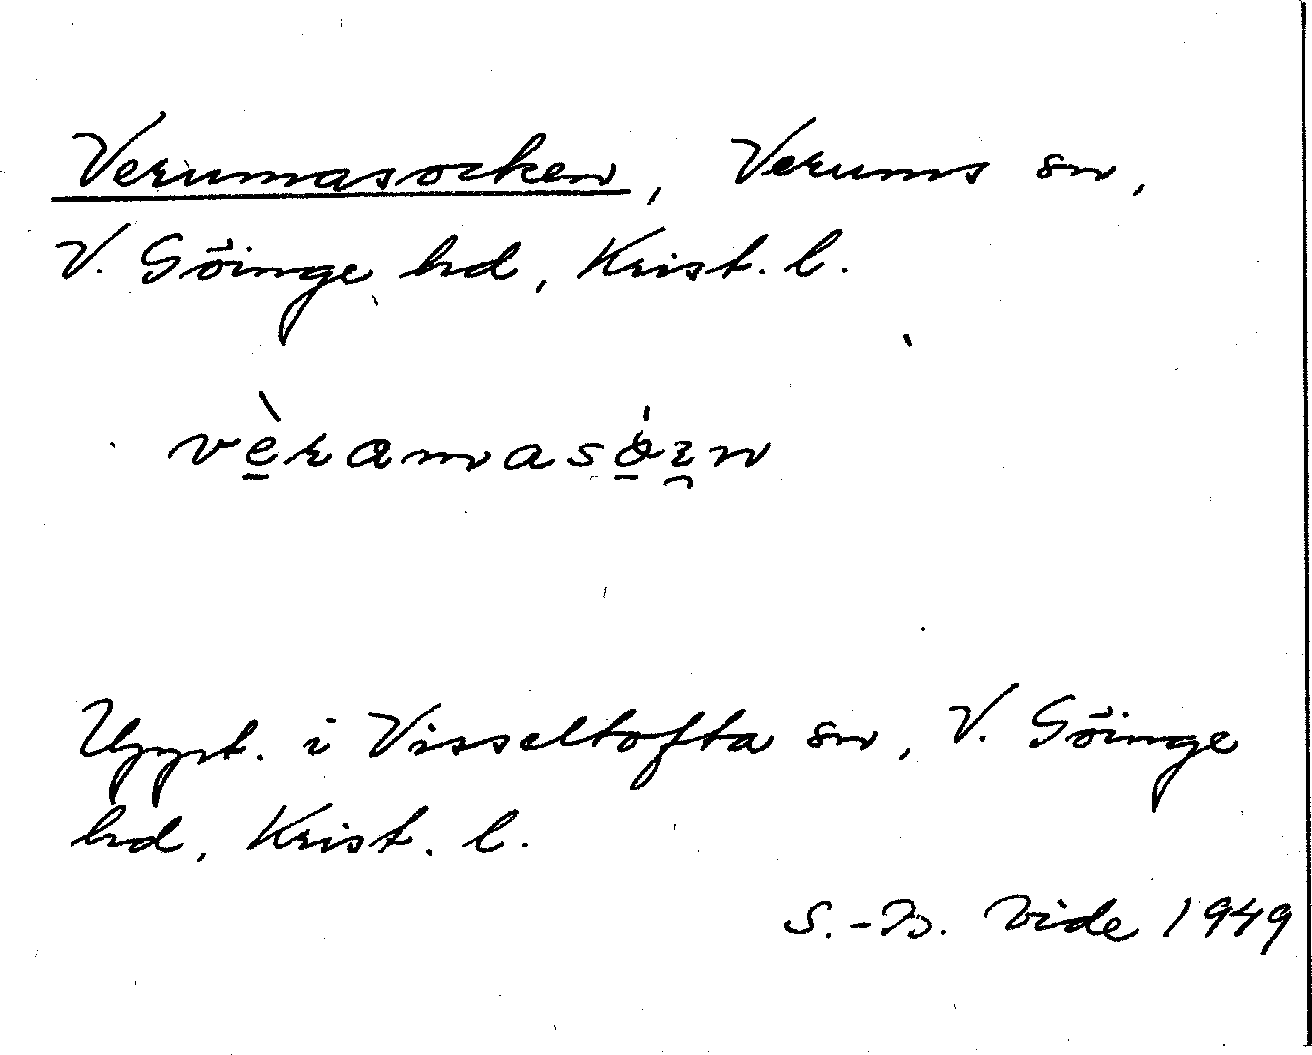 Verumasocken, Verums sn,
V. Göinge hd, Krist. l.
Uppt. i Visseltofta sn, V. Göinge
hd, Krist. l.
S.-B. Vide 1949